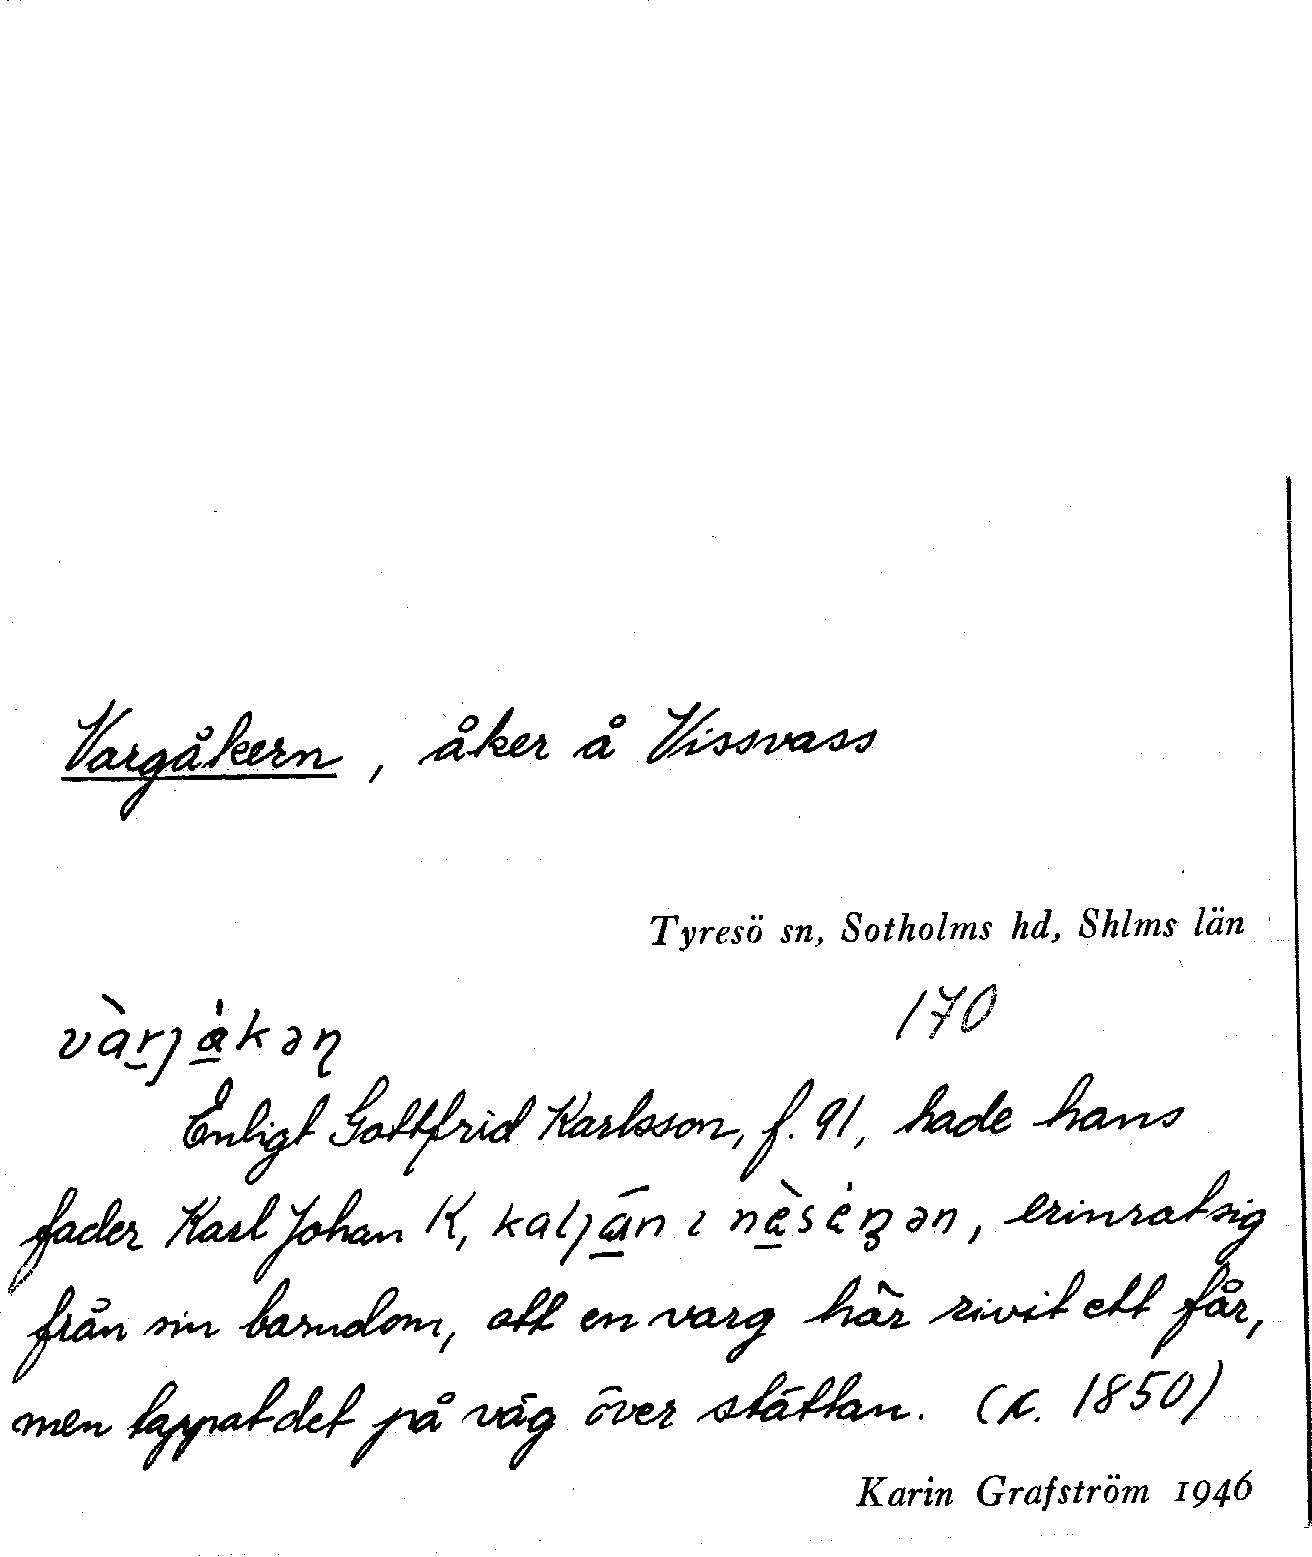 Vargåkern, åker å Vissvass
Tyresö sn, Sotholms hd, Shlms län
170
Enligt Gottfrid Karlsson, f. 91, hade hans
fader Karl Johan K, erinrat sig
från sin barndom, att en varg här rivit ett får,
men tappat det på väg över stättan. (c. 1850)
Karin Grafström 1946